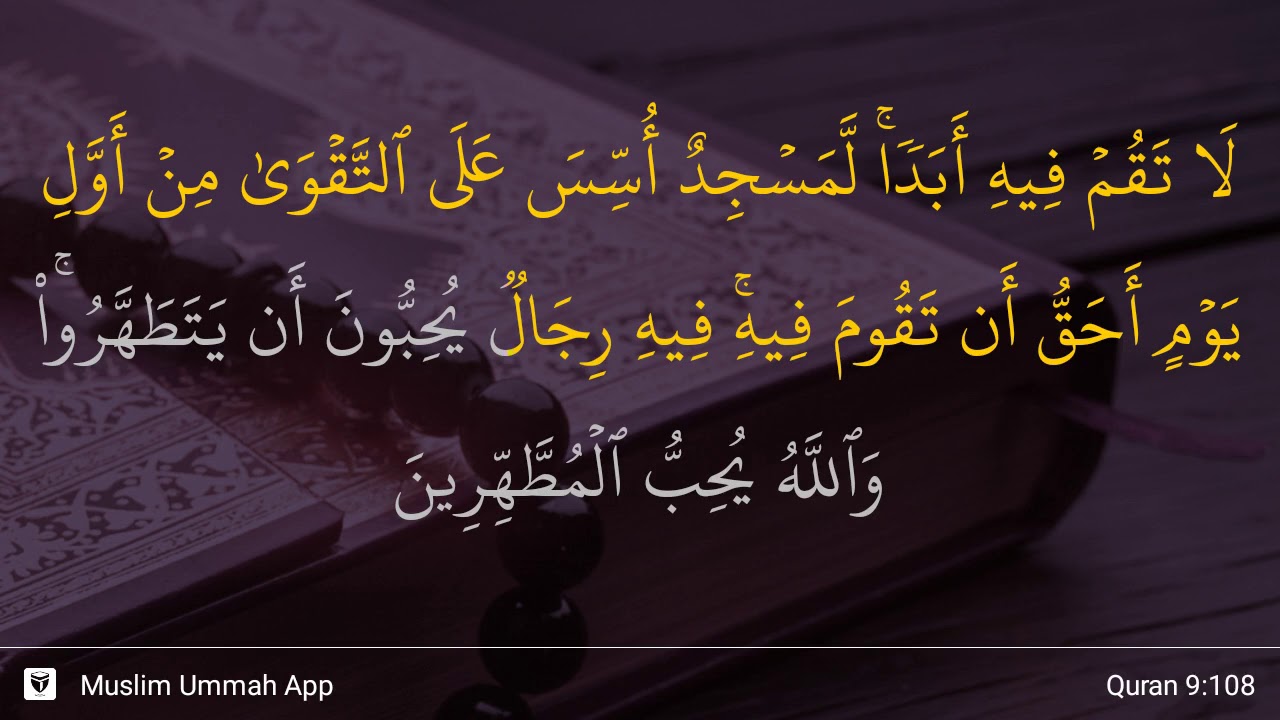 لَا تَقُمۡ فِيهِ أَبَدٗاۚ لَّمَسۡجِدٌ أُسِّسَ عَلَى ٱلتَّقۡوَىٰ مِنۡ أَوَّلِ
يَوۡمٍ أَحَقُّ أَن تَقُومَ فِيهِۚ فِيهِ رِجَالٞ يُحِبُّونَ أَن يَتَطَهَّرُواْۚ
وَٱللَّهُ يُحِبُّ ٱلۡمُطَّهِّرِينَ
Muslim Ummah App
Quran 9:108